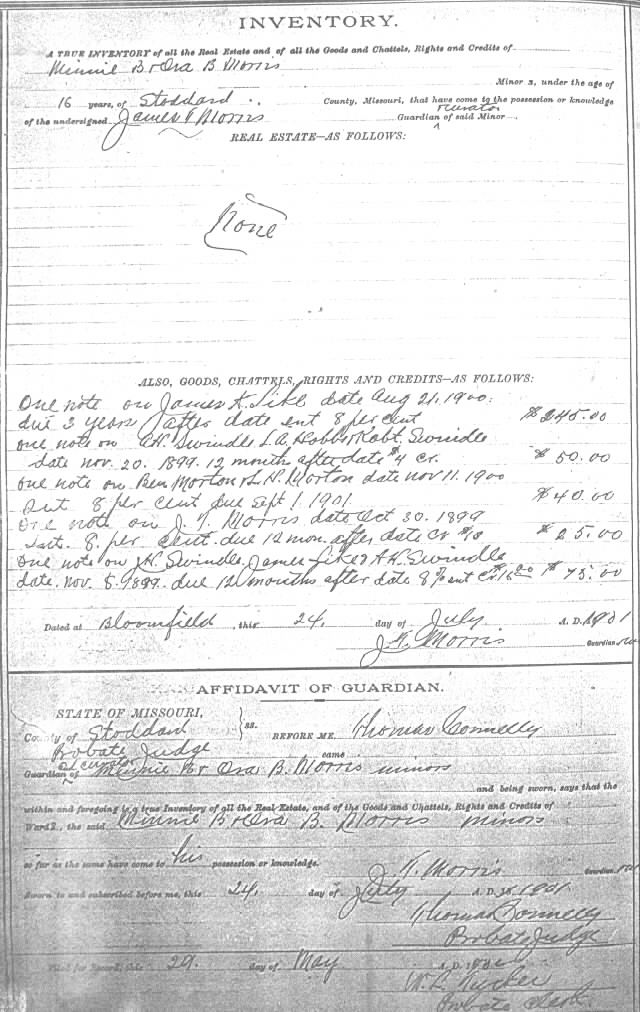 INVENTORY.
A TRUE INVENTORY of all the Real Estate and of all the Goods and Chattels, Rights and Credits of
Minnie B & Ora B Morris
Minor s, under the age of
16 years, of Stoddard County, Missouri, that have come to the possession or knowledge
curator
of the undersigned James T Morris Guardian of said Minor
REAL ESTATE—AS FOLLOWS:
None
ALSO, GOODS, CHATTELS, RIGHTS AND CREDITS—AS FOLLOWS:
One note on James K. Sike date Aug 21, 1900.
due 3 years after date ent 8 per cent $245.00
one note on A.H. Swindle L. A. Hobbs Robt. Swindle
date nov. 20. 1899. 12 months after date $4 cr. $50.00
one note on Ben Morton & L. H. Morton date nov 11. 1900
8 per cent due Sept 1 1901 $40.00
One note on J. T. Morris date Oct 30. 1899
8. per cent. due 12 mon. after date Cr $10 $25.00
One note on J.H. Swindle, James Sike & A H. Swindle
date. Nov. 8. 1899. due 12 months after date 8% ent $75.00
Dated at Bloomfield, this 24, day of July A. D. 1901
J. T. Morris Guardian
AFFIDAVIT OF GUARDIAN.
STATE OF MISSOURI,
County of Stoddard ss. BEFORE ME, Thomas Connelly
Probate Judge came
& curator
Guardian of Minnie B & Ora B. Morris minors
and being sworn, says that the
within and foregoing is a true Inventory of all the Real Estate, and of the Goods and Chattels, Rights and Credits of
Wards, the said Minnie B & Ora B. Morris minors
so far as the same have come to his possession or knowledge.
J. T. Morris Guardian
Sworn to and subscribed before me, this 24, day of July A. D. 1901
Thomas Connelly
Probate Judge
Filed for Record, this 29. day of May A. D.
Probate Clerk